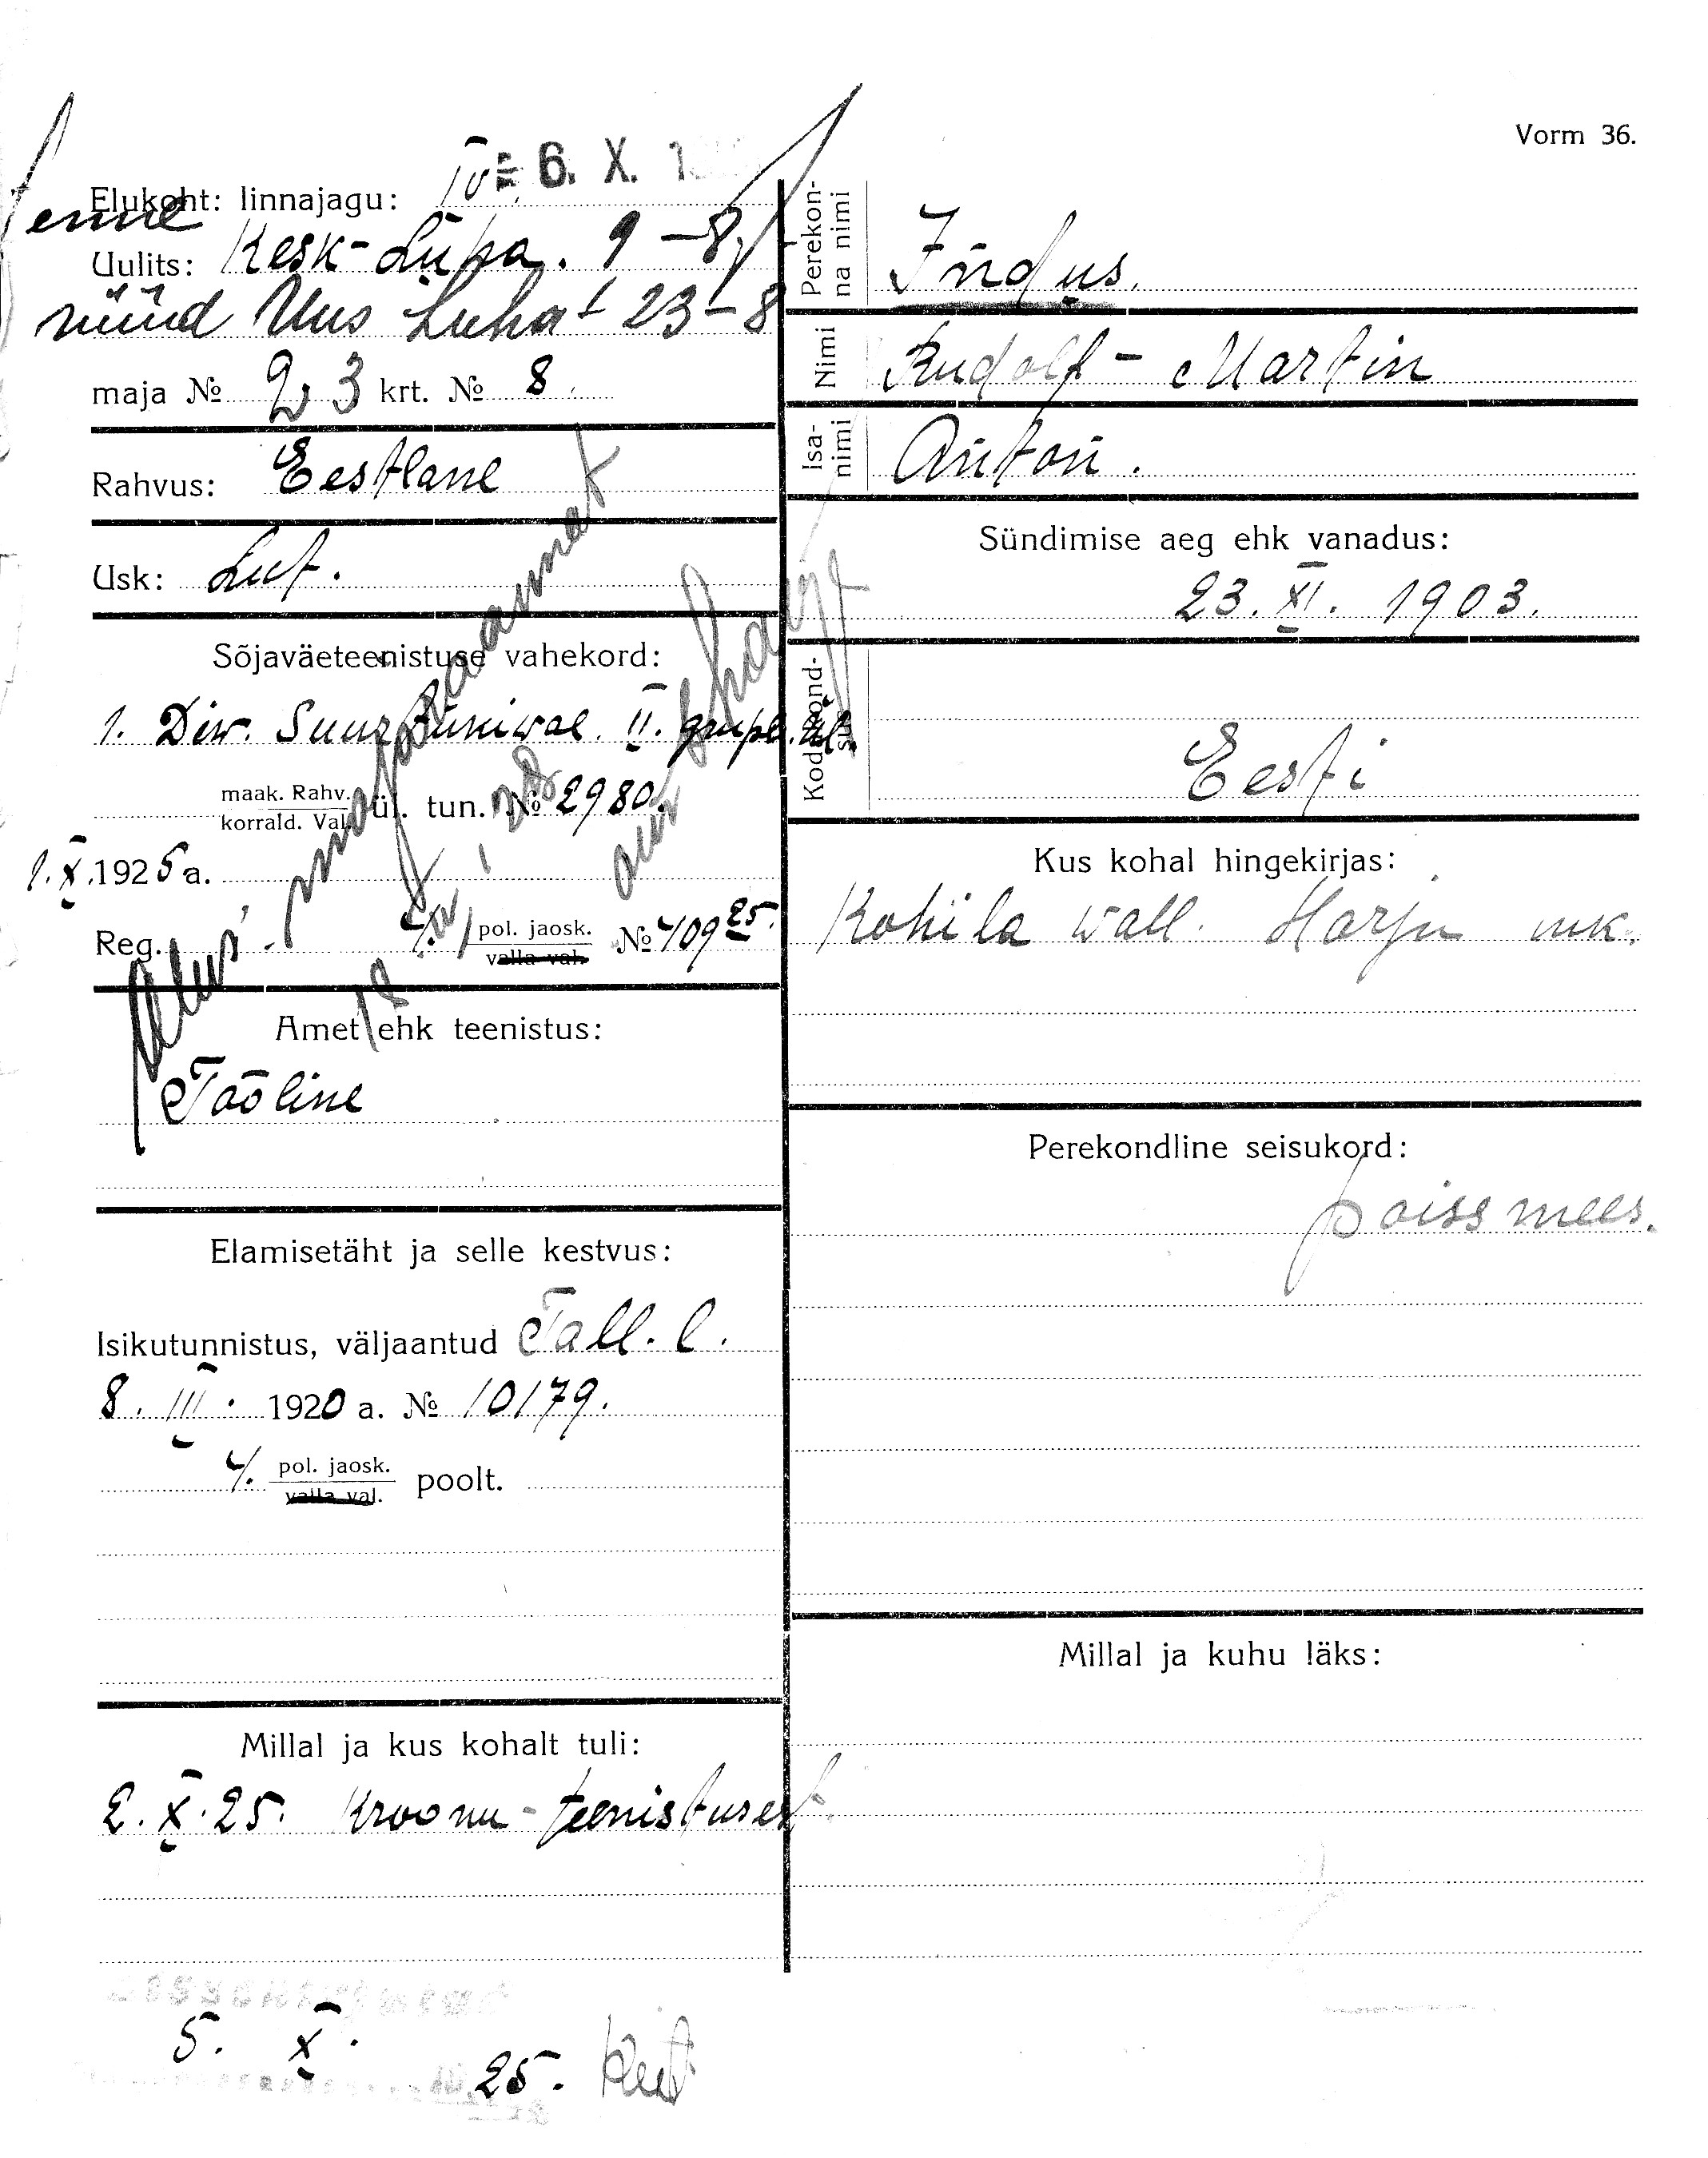 Vorm 36.
Elukoht: linnajagu: IV 6. X.
enne
Uulits: Kesk-Luha. 9 – 8
nüüd Uus Luha t 23 – 8
maja № 23 krt. № 8.
Rahvus: Eestlane
Usk: Lut.
Sõjaväeteenistuse vahekord:
1. Diw. Suurtükiwäe. II. grupi. ül.
maak. Rahv.
korrald. Val. ül. tun. № 2980.
1. X. 1925 a.
Reg. 4. pol. jaosk. № 409 25.
valla val.
Amet ehk teenistus:
Tööline
Elamisetäht ja selle kestvus:
Isikutunnistus, väljaantud Tall. l.
8. III. 1920 a. № 10179.
4. pol. jaosk. poolt.
valla val.
Millal ja kus kohalt tuli:
2. X. 25. Kroonu-teenistusest.
5. X. 25.
Perekonna nimi
Indus.
Nimi
Rudolf – Martin
Isanimi
Anton.
Sündimise aeg ehk vanadus:
23. XI. 1903.
Kodakondsus
Eesti
Kus kohal hingekirjas:
Kohila wall. Harju mk.
Perekondline seisukord:
poissmees.
Millal ja kuhu läks: